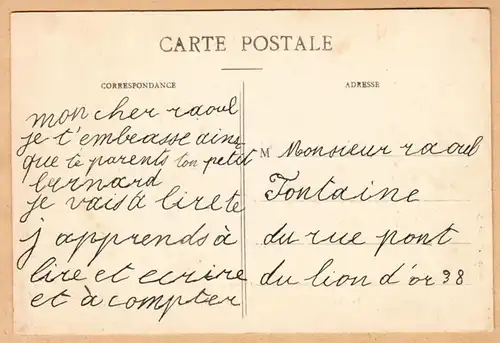 CARTE POSTALE
CORRESPONDANCE
mon cher raoul
je t'embrasse ainsi
que tè parents ton petit
bernard
je vais à lirete
j apprends à
lire et ecrire
et à compter
ADRESSE
M Monsieur raoul
Fontaine
du rue pont
du lion d'or 38